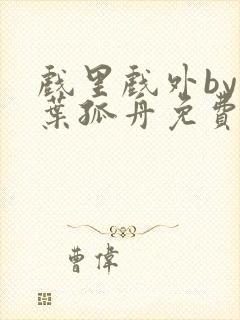 戲里戲外by
葉孤舟免費
曹偉